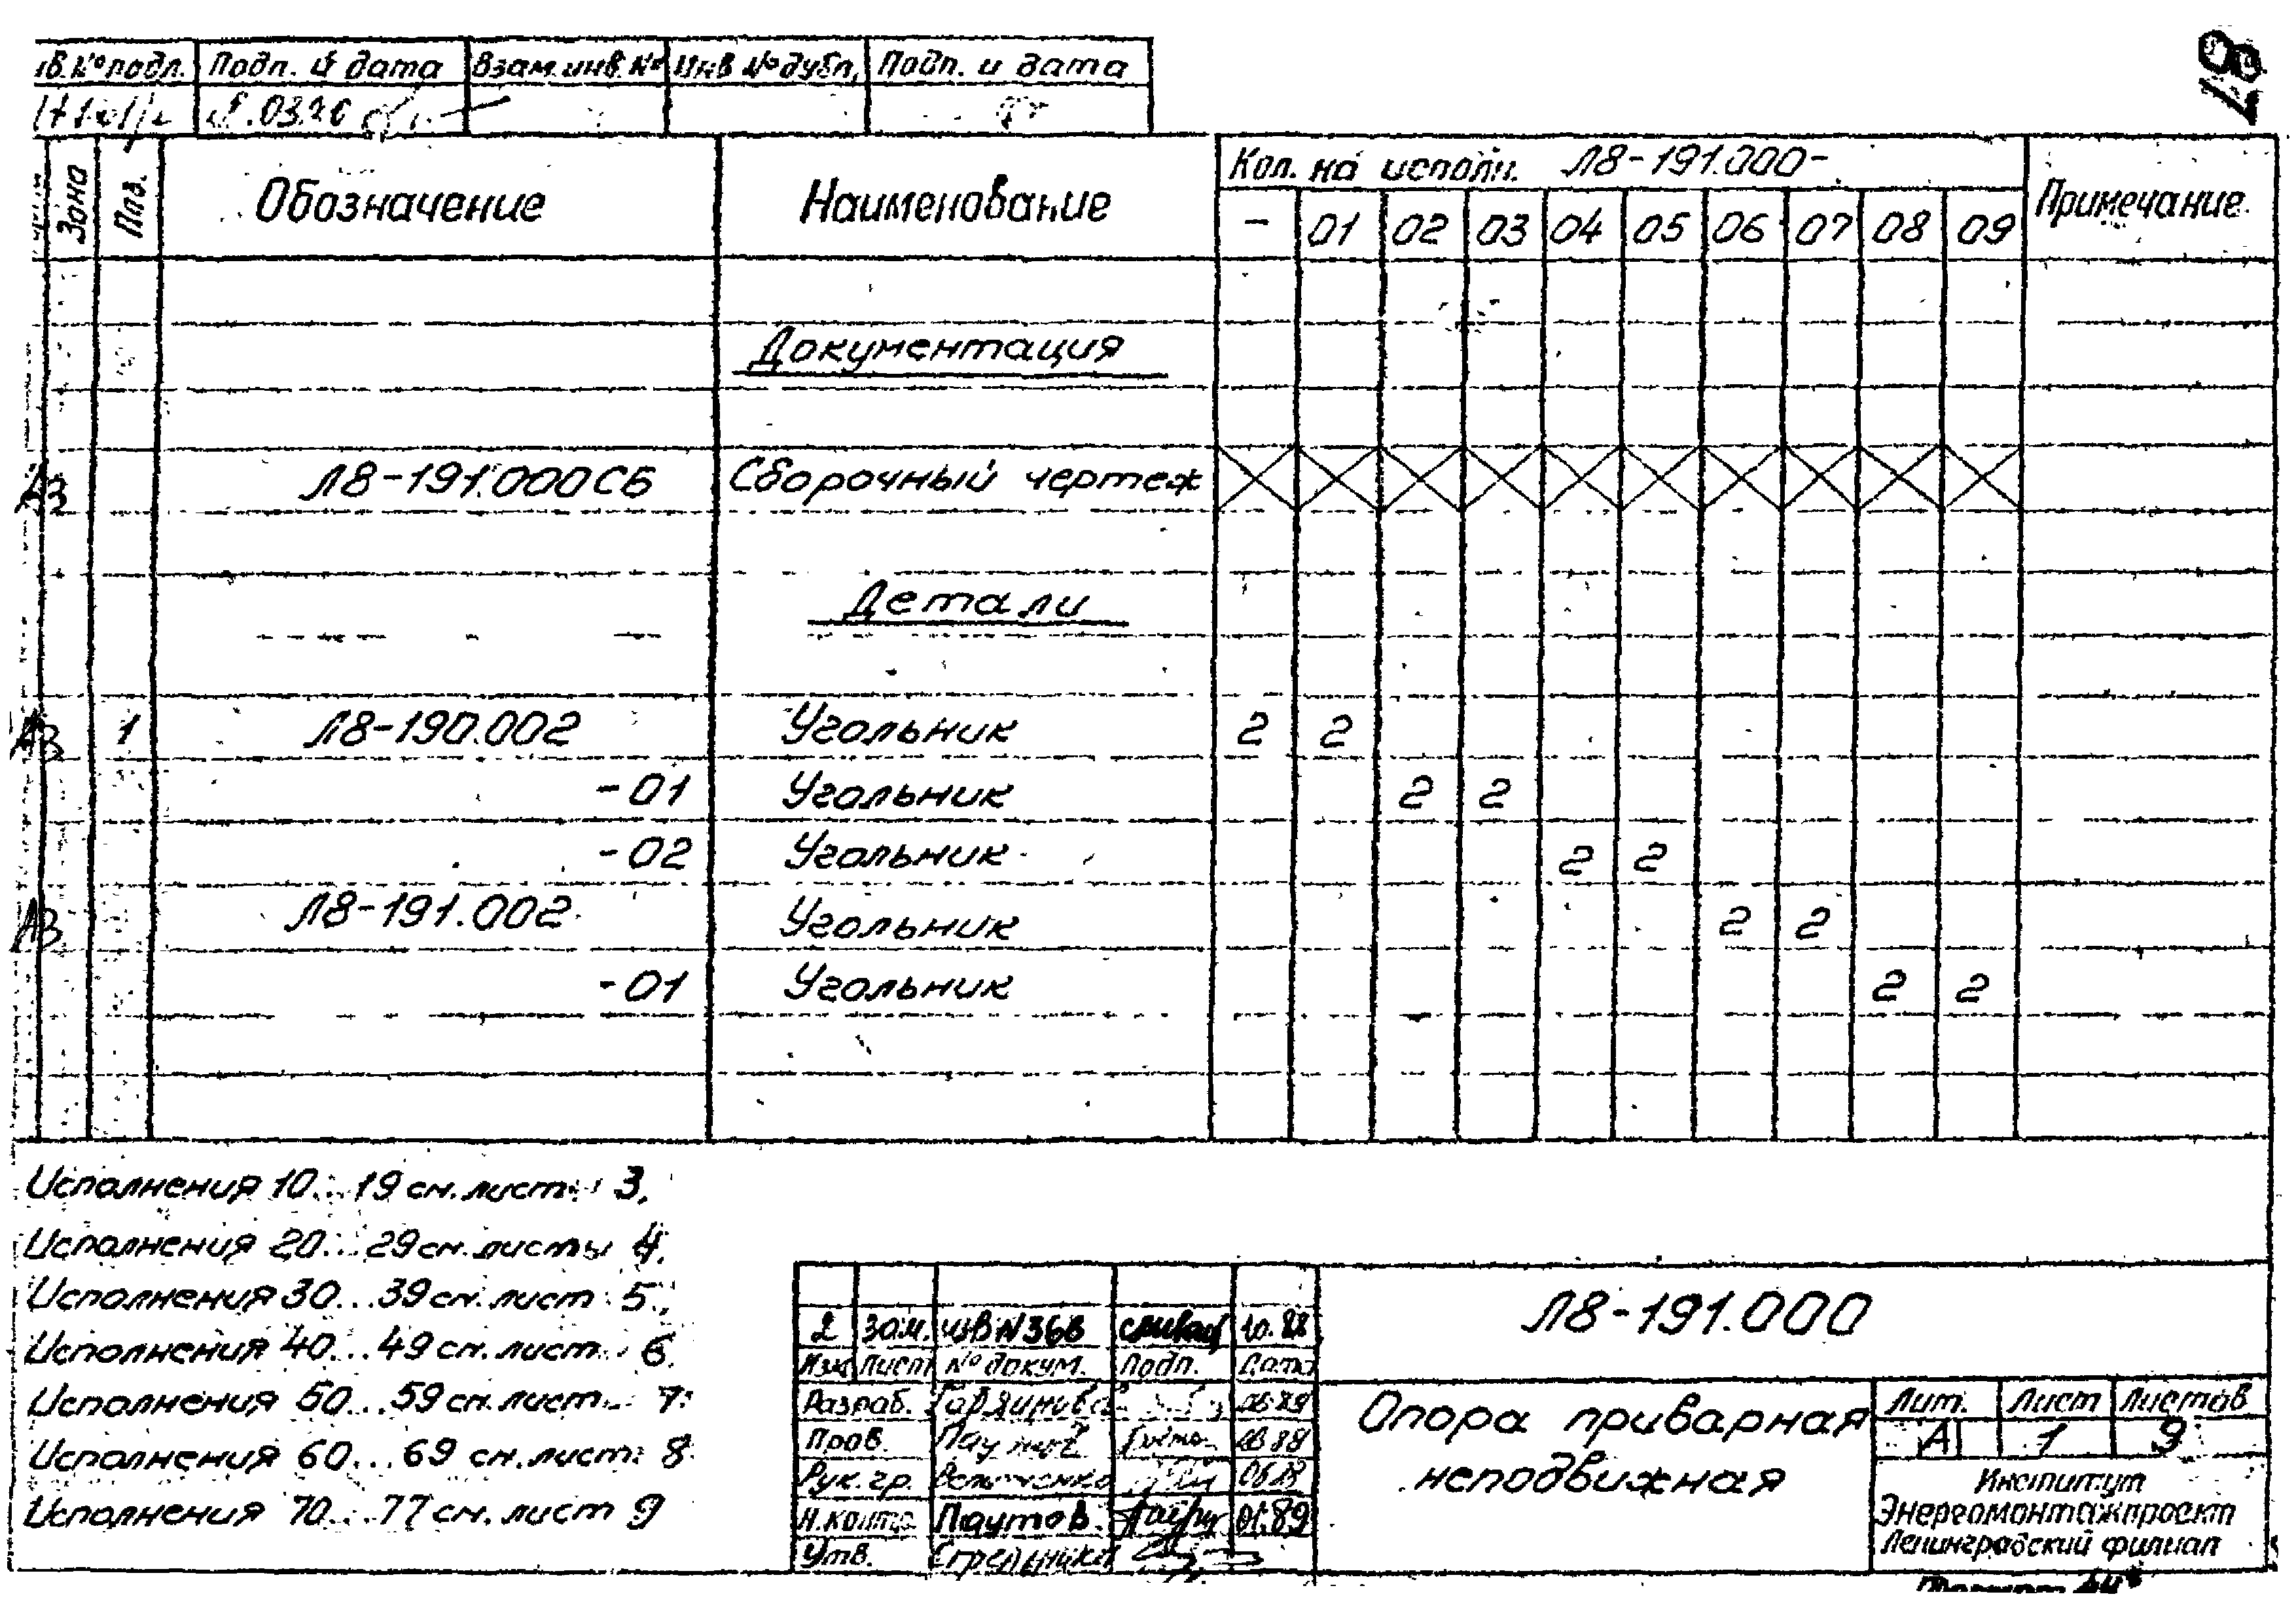 87
в.№ подл. Подп. и дата Взам.инв.№ Инв №дубл. Подп. и дата
Зона Поз. Обозначение Наименование Кол. на исполн. Л8-191.000- Примечание
- 01 02 03 04 05 06 07 08 09
Документация
А3 Л8-191.000СБ Сборочный чертеж
Детали
А3 1 Л8-190.002 Угольник 2 2
-01 Угольник 2 2
-02 Угольник 2 2
А3 Л8-191.002 Угольник 2 2
-01 Угольник 2 2
Исполнения 10...19 см. лист 3,
Исполнения 20...29 см. листы 4,
Исполнения 30...39 см. лист 5,
Исполнения 40...49 см. лист 6
Исполнения 50...59 см. лист 7
Исполнения 60...69 см. лист 8
Исполнения 70...77 см. лист 9
2 Зам.
Изм Лист № докум. Подп. Дата
Разраб.
Пров.
Рук. гр.
Н.контр. Паутов 01.89
Утв.
Л8-191.000
Опора приварная
неподвижная
Лит. Лист Листов
А 1 9
Институт
Энергомонтажпроект
Ленинградский филиал